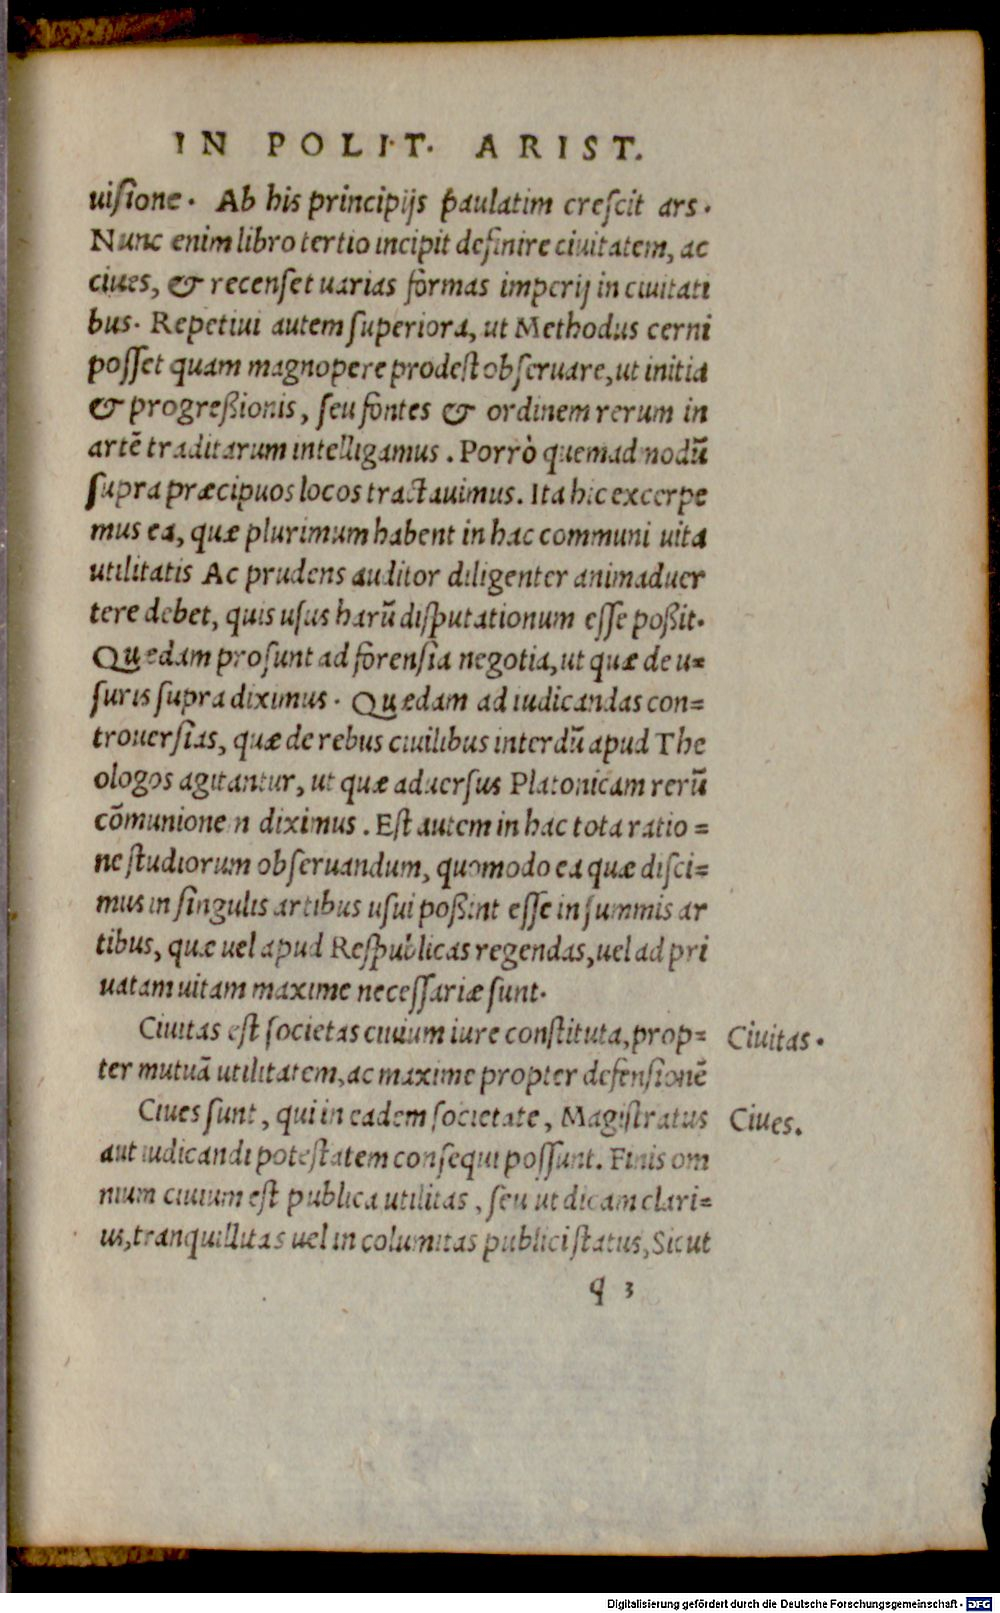 IN POLIT. ARIST.
uiſione. Ab his principijs paulatim creſcit ars.
Nunc enim libro tertio incipit definire ciuitatem, ac
ciues, & recenſet uarias formas imperij in ciuitati
bus. Repetiui autem ſuperiora, ut Methodus cerni
poſſet quam magnopere prodeſt obſeruare, ut initia
& progreßionis, ſeu fontes & ordinem rerum in
artē traditarum intelligamus. Porrò quemadmodū
ſupra præcipuos locos tractauimus. Ita hic excerpe
mus ea, quæ plurimum habent in hac communi uita
utilitatis Ac prudens auditor diligenter animaduer
tere debet, quis uſus harū diſputationum eſſe poßit.
Quædam proſunt ad forenſia negotia, ut quæ de u=
ſuris ſupra diximus. Quædam ad iudicandas con=
trouerſias, quæ de rebus ciuilibus interdū apud The
ologos agitantur, ut quæ aduerſus Platonicam rerū
cōmunionem diximus. Eſt autem in hac tota ratio=
ne ſtudiorum obſeruandum, quomodo ea quæ diſci=
mus in ſingulis artibus uſui poßint eſſe in ſummis ar
tibus, quæ uel apud Reſpublicas regendas, uel ad pri
uatam uitam maxime neceſſariæ ſunt.
Ciuitas eſt ſocietas ciuium iure conſtituta, prop= Ciuitas.
ter mutuā utilitatem, ac maxime propter defenſionē
Ciues ſunt, qui in eadem ſocietate, Magiſtratus Ciues.
aut iudicandi poteſtatem conſequi poſſunt. Finis om
nium ciuium eſt publica utilitas, ſeu ut dicam clari=
us, tranquillitas uel in columitas publici ſtatus, Sicut
q 3
Digitalisierung gefördert durch die Deutsche Forschungsgemeinschaft - DFG